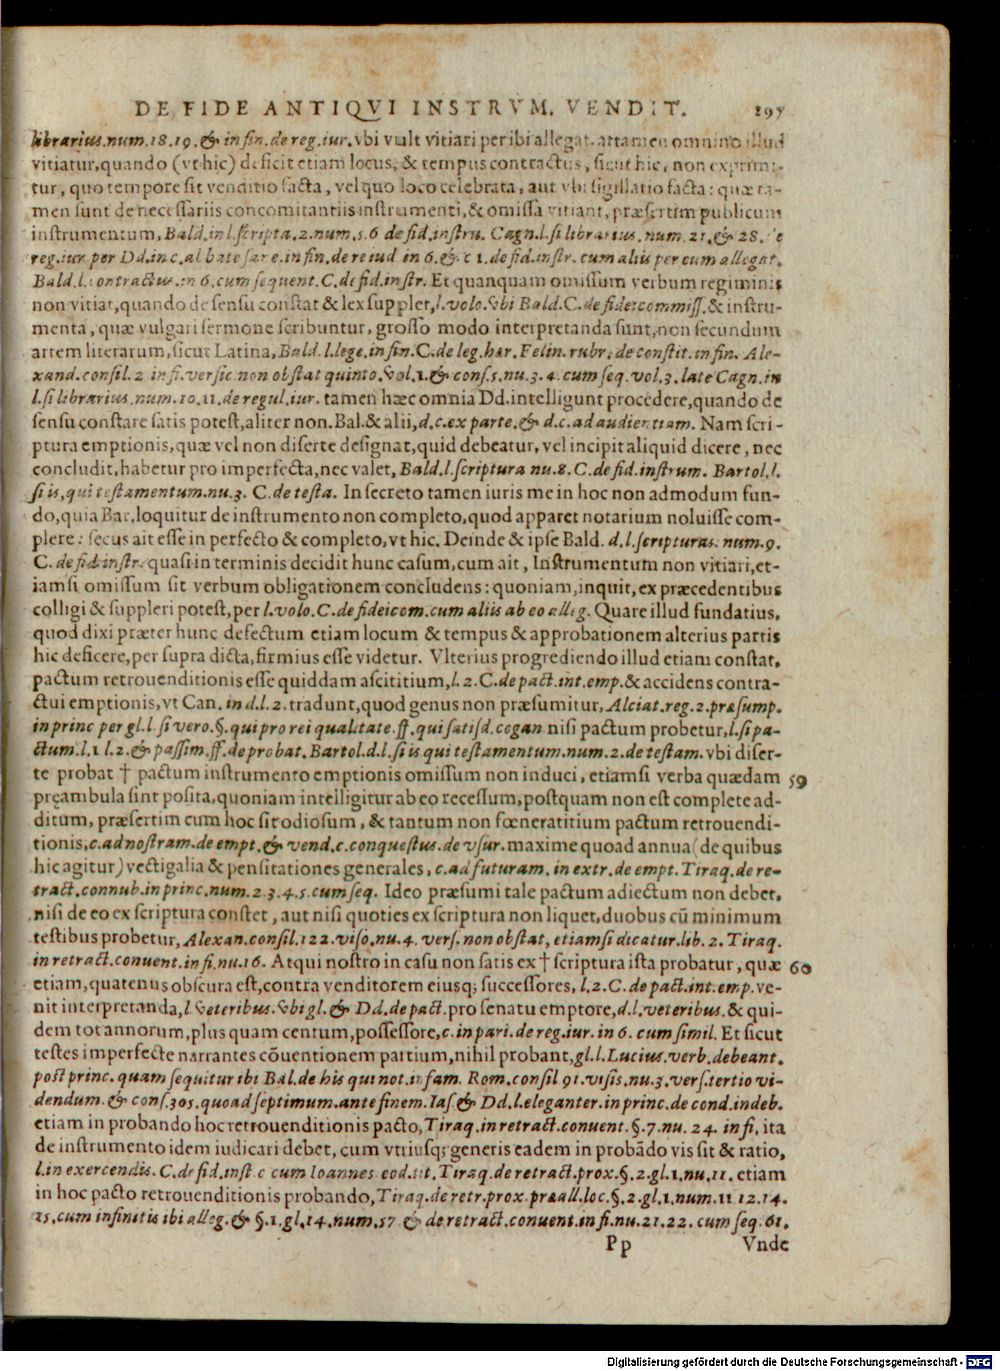 DE FIDE ANTIQVI INSTRVM. VENDIT. 297
librarius.num.18.19.& in fin.de reg.iur.vbi vult vitiari per ibi allegat.attamen omnino illud
vitiatur,quando (vt hic) deficit etiam locus, & tempus contractus, sicut hic, non exprimi-
tur, quo tempore sit venditio facta, vel quo loco celebrata, aut vbi sigillatio facta: quæ ta-
men sunt de necessariis concomitantiis instrumenti,& omissa vitiant, præsertim publicum
instrumentum, Bald.in l.scripta.2.num.5.6 de fid.instru. Cagn.l.si librarius. num. 21.& 28. de
reg.iur.per Dd.in c.al bate sane.in fin.de re iud in 6.& c 1.de fid.instr.cum aliis per eum allegat.
Bald.l.contractus.in 6.cum sequent.C.de fid.instr. Et quanquam omissum verbum regiminis
non vitiat,quando de sensu constat & lex supplet,l.volo.vbi Bald.C.de fideicommiss.& instru-
menta, quæ vulgari sermone scribuntur, grosso modo interpretanda sunt,non secundum
artem literarum,sicut Latina,Bald.l.lege.in fin.C.de leg.hær.Felin.rubr.de constit.in fin. Ale-
xand.consil.2 in fi.versic.non obstat quinto.vol.1.& cons.5.nu.3.4.cum seq.vol.3.late Cagn.in
l.si librarius.num.10.11.de regul.iur. tamen hæc omnia Dd.intelligunt procedere,quando de
sensu constare satis potest,aliter non.Bal.& alii,d.c.ex parte.& d.c.ad audientiam. Nam scri-
ptura emptionis,quæ vel non diserte designat,quid debeatur,vel incipit aliquid dicere, nec
concludit,habetur pro imperfecta,nec valet, Bald.l.scriptura nu.8.C.de fid.instrum. Bartol.l.
si is,qui testamentum.nu.3. C.de testa. In secreto tamen iuris me in hoc non admodum fun-
do,quia Bar.loquitur de instrumento non completo,quod apparet notarium noluisse com-
plere: secus ait esse in perfecto & completo,vt hic. Deinde & ipse Bald. d.l.scripturas.num.9.
C.de fid.instr.quasi in terminis decidit hunc casum,cum ait, Instrumentum non vitiari,et-
iamsi omissum sit verbum obligationem concludens: quoniam,inquit,ex præcedentibus
colligi & suppleri potest,per l.volo.C.de fideicom.cum aliis ab eo alleg. Quare illud fundatius,
quod dixi præter hunc defectum etiam locum & tempus & approbationem alterius partis
hic deficere,per supra dicta,firmius esse videtur. Vlterius progrediendo illud etiam constat,
pactum retrouenditionis esse quiddam ascititium,l.2.C.de pact.int.emp.& accidens contra-
ctui emptionis,vt Can.in d.l.2.tradunt,quod genus non præsumitur,Alciat.reg.2.præsump.
in princ per gl.l.si vero.§.qui pro rei qualitate.ff.qui satisd.cogan nisi pactum probetur,l.si pa-
ctum.l.1 l.2.& passim.ff.de probat.Bartol.d.l.si is qui testamentum.num.2.de testam. vbi diser-
te probat † pactum instrumento emptionis omissum non induci, etiamsi verba quædam 59
pręambula sint posita,quoniam intelligitur ab eo recessum,postquam non est complete ad-
ditum, præsertim cum hoc sit odiosum, & tantum non fœneratitium pactum retrouendi-
tionis,c.ad nostram.de empt.& vend.c.conquestus.de vsur.maxime quoad annua(de quibus
hic agitur)vectigalia & pensitationes generales, c.ad futuram. in extr.de empt. Tiraq.de re-
tract.connub.in princ.num.2.3.4.5.cum seq. Ideo præsumi tale pactum adiectum non debet,
nisi de eo ex scriptura constet, aut nisi quoties ex scriptura non liquet,duobus cũ minimum
testibus probetur, Alexan.consil.122.viso.nu.4. vers.non obstat, etiamsi dicatur.lib. 2. Tiraq.
in retract.conuent.in fi.nu.16. Atqui nostro in casu non satis ex † scriptura ista probatur, quæ 60
etiam,quatenus obscura est,contra venditorem eiusq; successores, l.2.C.de pact.int.emp.ve-
nit interpretanda,l veteribus.vbi gl.& Dd.de pact.pro senatu emptore,d.l.veteribus.& qui-
dem tot annorum,plus quam centum,possessore,c.in pari.de reg.iur.in 6.cum simil. Et sicut
testes imperfecte narrantes cõuentionem partium,nihil probant,gl.l.Lucius.verb.debeant.
post princ.quam sequitur ibi Bal.de his qui not.infam. Rom.consil 91.visis.nu.3.vers.tertio vi-
dendum.& cons.305.quoad septimum.ante finem.Ias.& Dd.l.eleganter.in princ.de cond.indeb.
etiam in probando hoc retrouenditionis pacto,Tiraq.in retract.conuent.§.7.nu. 24. in fi,ita
de instrumento idem iudicari debet, cum vtriusq; generis eadem in probãdo vis sit & ratio,
l.in exercendis.C.de fid.inst.c cum Ioannes eod.tit.Tiraq.de retract.prox.§.2.gl.1.nu.11. etiam
in hoc pacto retrouenditionis probando,Tiraq.de retr.prox.præall.loc.§.2.gl.1.num.11 12.14.
15.cum infinitis ibi alleg.& §.1.gl.14.num.57 & de retract.conuent.in fi.nu.21.22.cum seq.61.
Pp Vnde
Digitalisierung gefördert durch die Deutsche Forschungsgemeinschaft - DFG